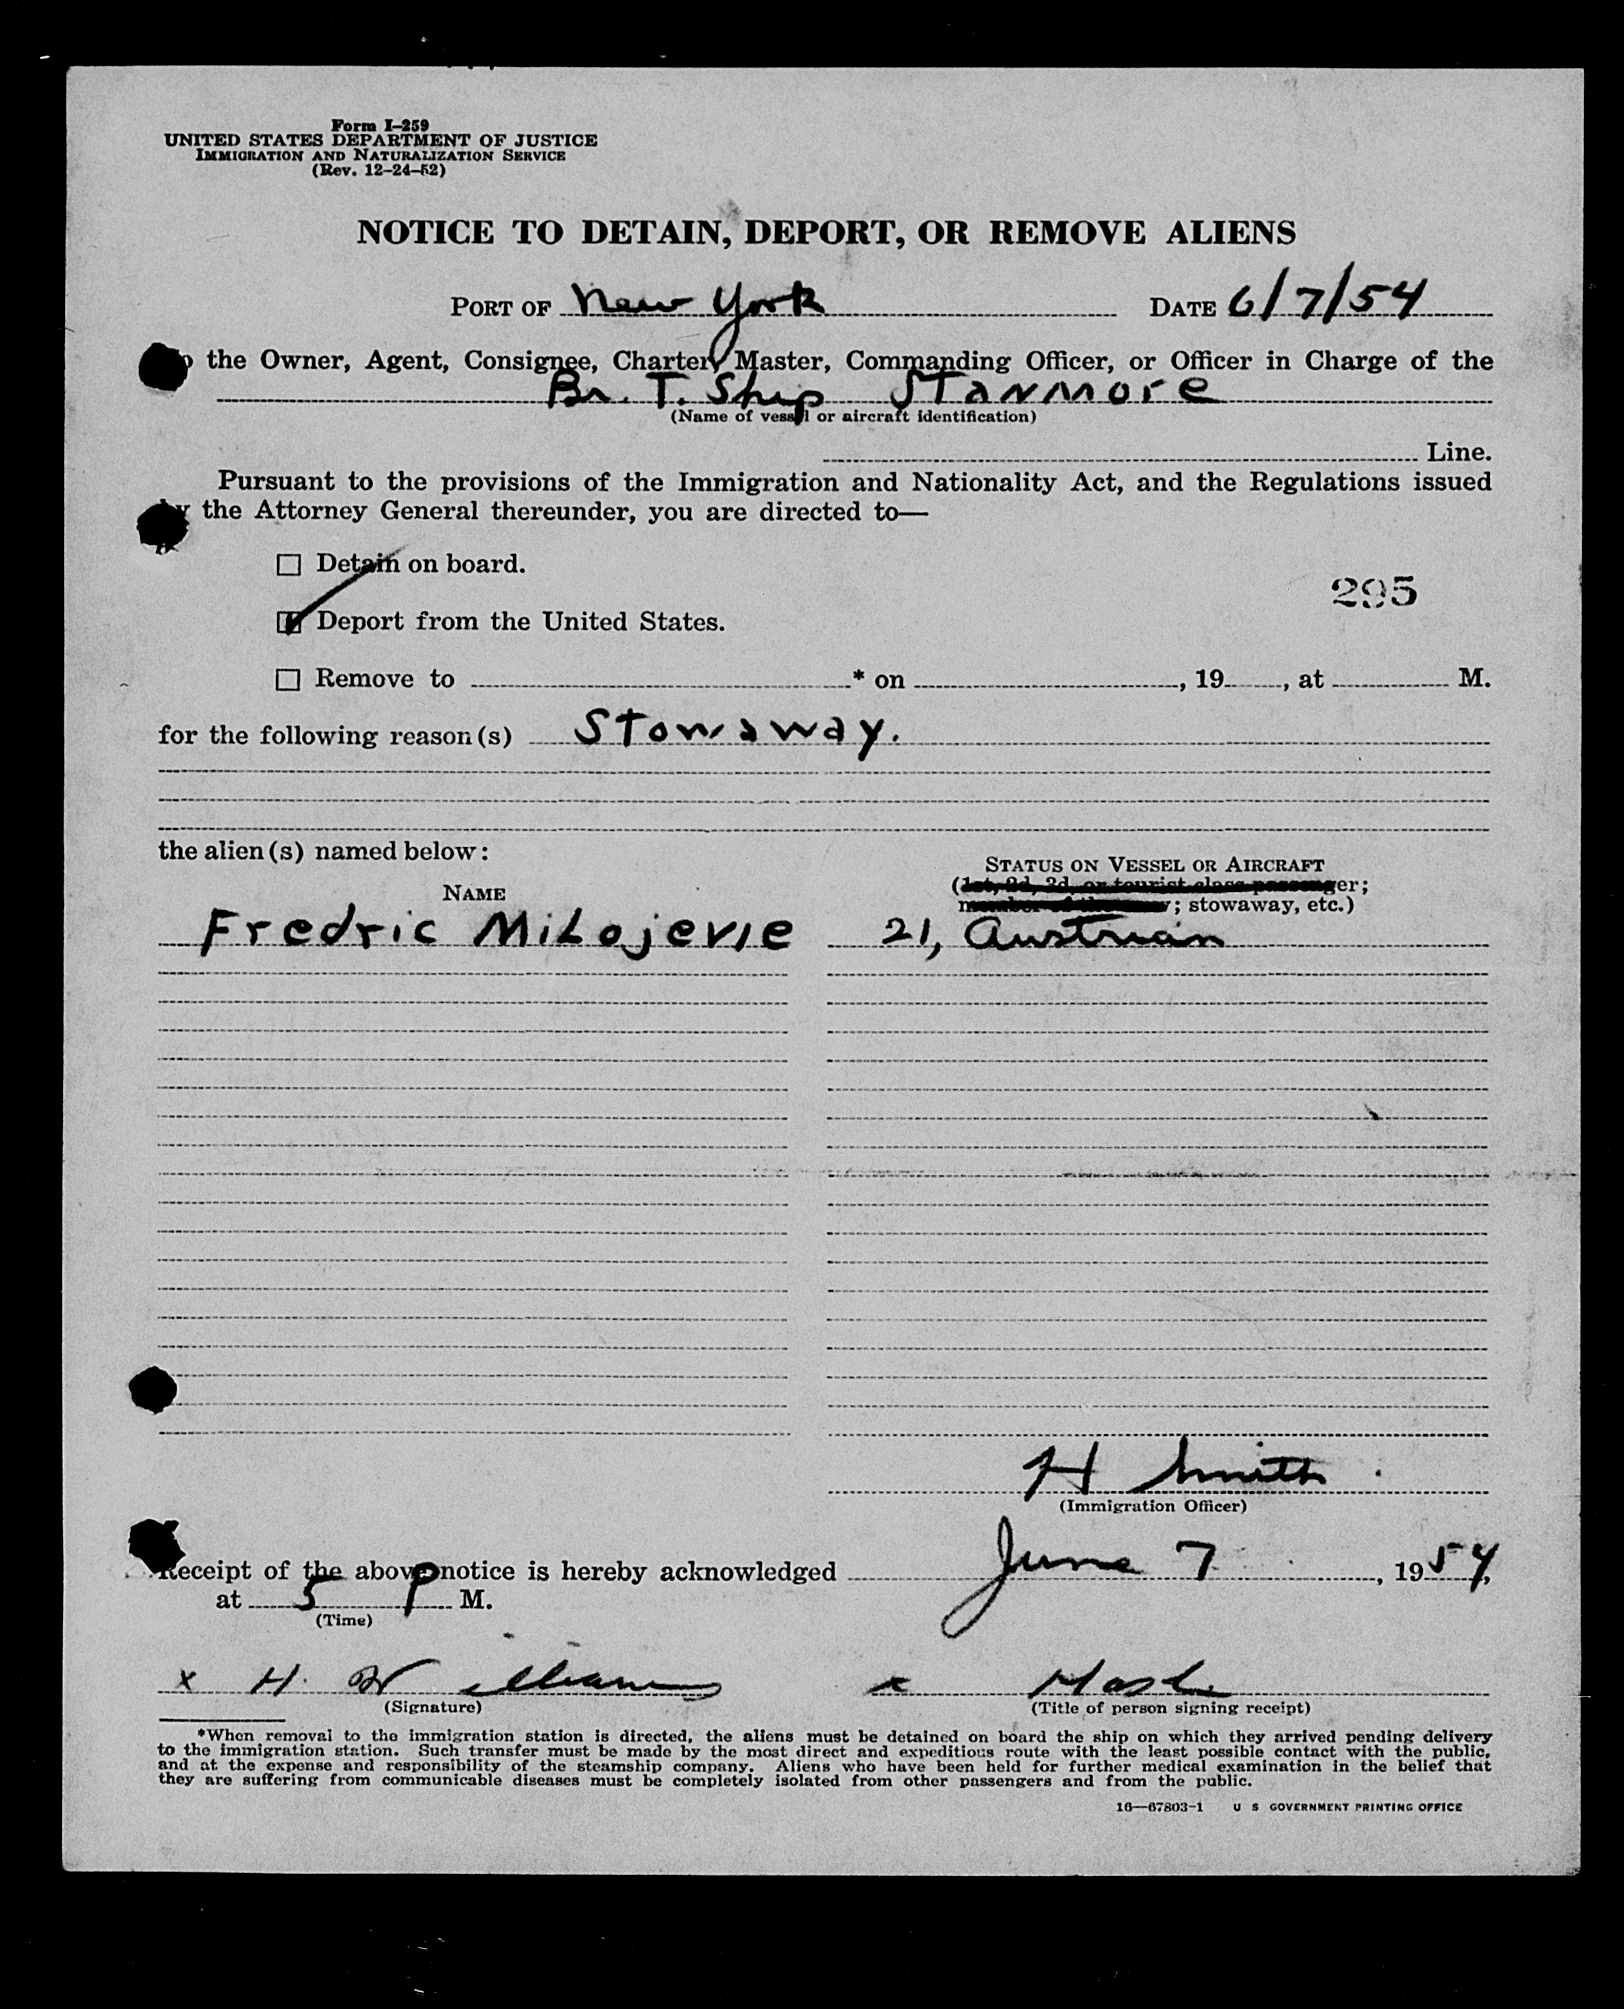 Form I-259
UNITED STATES DEPARTMENT OF JUSTICE
IMMIGRATION AND NATURALIZATION SERVICE
(Rev. 12-24-52)
NOTICE TO DETAIN, DEPORT, OR REMOVE ALIENS
PORT OF New York DATE 6/7/54
the Owner, Agent, Consignee, Charter, Master, Commanding Officer, or Officer in Charge of the
Br. T. Ship Stanmore
(Name of vessel or aircraft identification)
Line.
Pursuant to the provisions of the Immigration and Nationality Act, and the Regulations issued
by the Attorney General thereunder, you are directed to—
Detain on board.
295
Deport from the United States.
Remove to * on , 19 , at M.
for the following reason(s) Stowaway.
the alien(s) named below:
STATUS ON VESSEL OR AIRCRAFT
NAME
(1st, 2d, 3d, or tourist class passenger;
member of the crew; stowaway, etc.)
Fredric Milojevie 21, Austrian
H Smith
(Immigration Officer)
Receipt of the above notice is hereby acknowledged June 7, 1954,
at 5 P M.
(Time)
x H. Williams x
(Signature) (Title of person signing receipt)
*When removal to the immigration station is directed, the aliens must be detained on board the ship on which they arrived pending delivery
to the immigration station. Such transfer must be made by the most direct and expeditious route with the least possible contact with the public,
and at the expense and responsibility of the steamship company. Aliens who have been held for further medical examination in the belief that
they are suffering from communicable diseases must be completely isolated from other passengers and from the public.
16—67803-1 U S GOVERNMENT PRINTING OFFICE